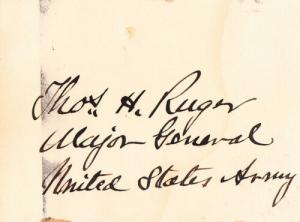 Thos. H. Ruger
Major General
United States Army